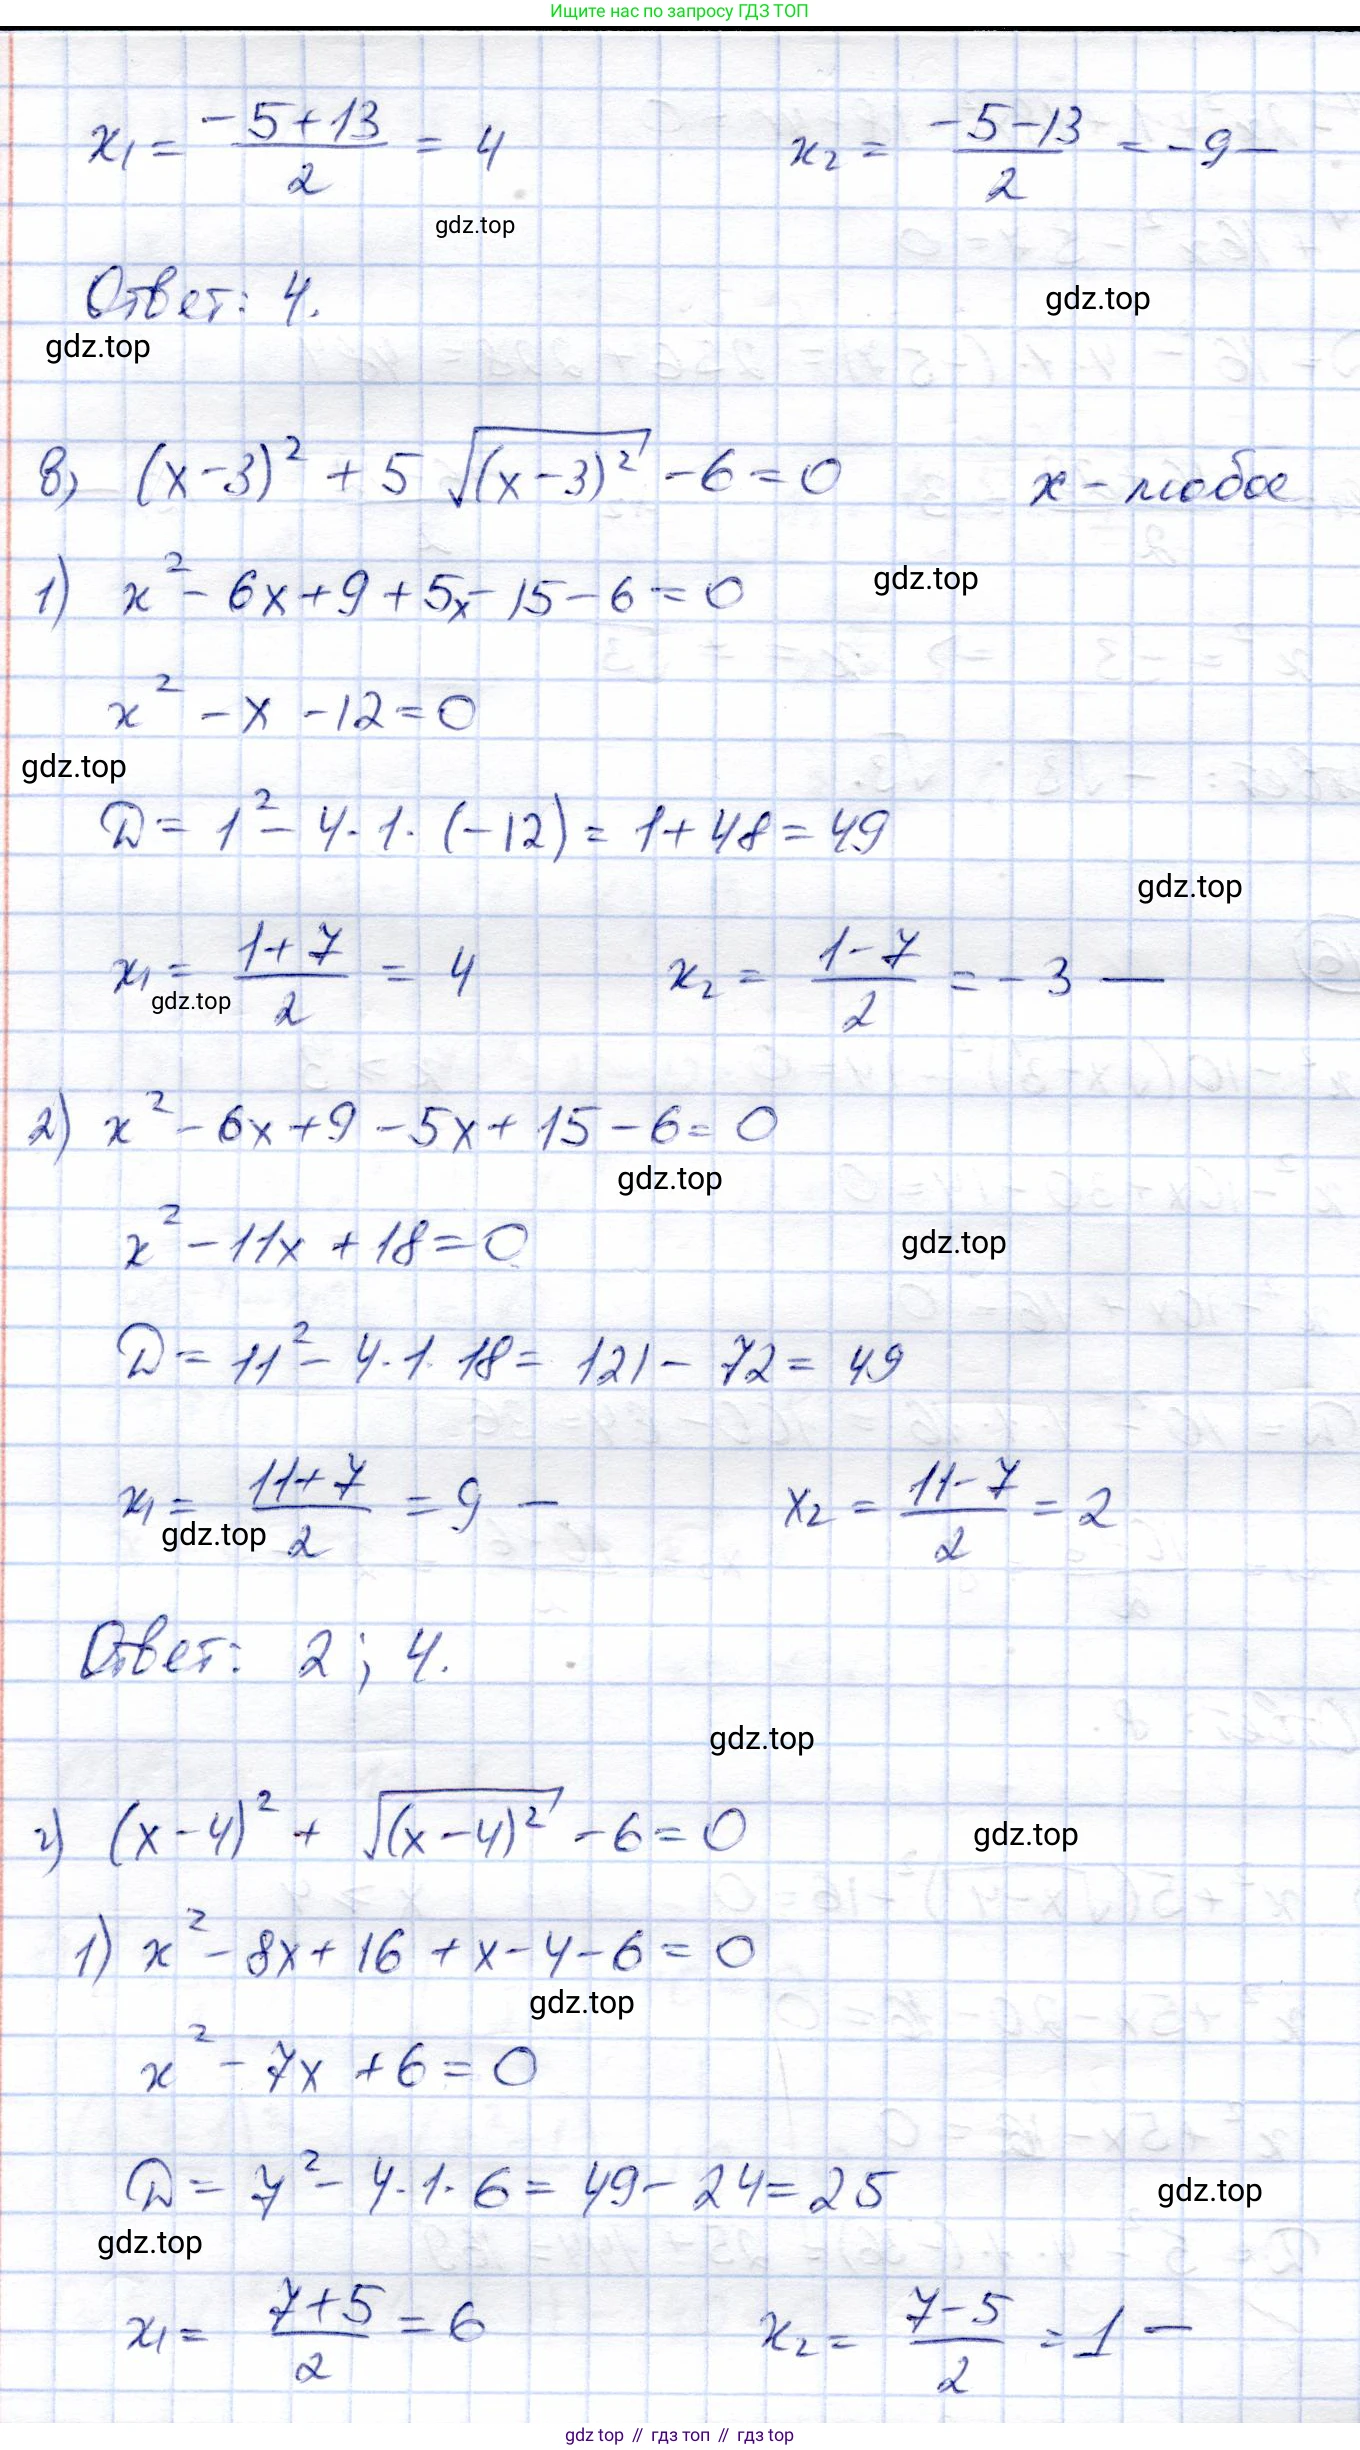 Ищите нас по запросу ГДЗ ТОП
x₁ = (-5+13)/2 = 4    x₂ = (-5-13)/2 = -9 —
gdz.top
Ответ: 4.
gdz.top
gdz.top
в) (x-3)² + 5 √((x-3)²) - 6 = 0    x - любое
gdz.top
1) x² - 6x + 9 + 5x - 15 - 6 = 0
x² - x - 12 = 0
gdz.top
D = 1² - 4·1·(-12) = 1 + 48 = 49
gdz.top
x₁ = (1+7)/2 = 4    x₂ = (1-7)/2 = -3 —
gdz.top
2) x² - 6x + 9 - 5x + 15 - 6 = 0
gdz.top
x² - 11x + 18 = 0
gdz.top
D = 11² - 4·1·18 = 121 - 72 = 49
x₁ = (11+7)/2 = 9 —    x₂ = (11-7)/2 = 2
gdz.top
Ответ: 2; 4.
gdz.top
г) (x-4)² + √((x-4)²) - 6 = 0
gdz.top
1) x² - 8x + 16 + x - 4 - 6 = 0
gdz.top
x² - 7x + 6 = 0
D = 7² - 4·1·6 = 49 - 24 = 25
gdz.top
gdz.top
x₁ = (7+5)/2 = 6    x₂ = (7-5)/2 = 1 —
gdz top // гдз топ // gdz top